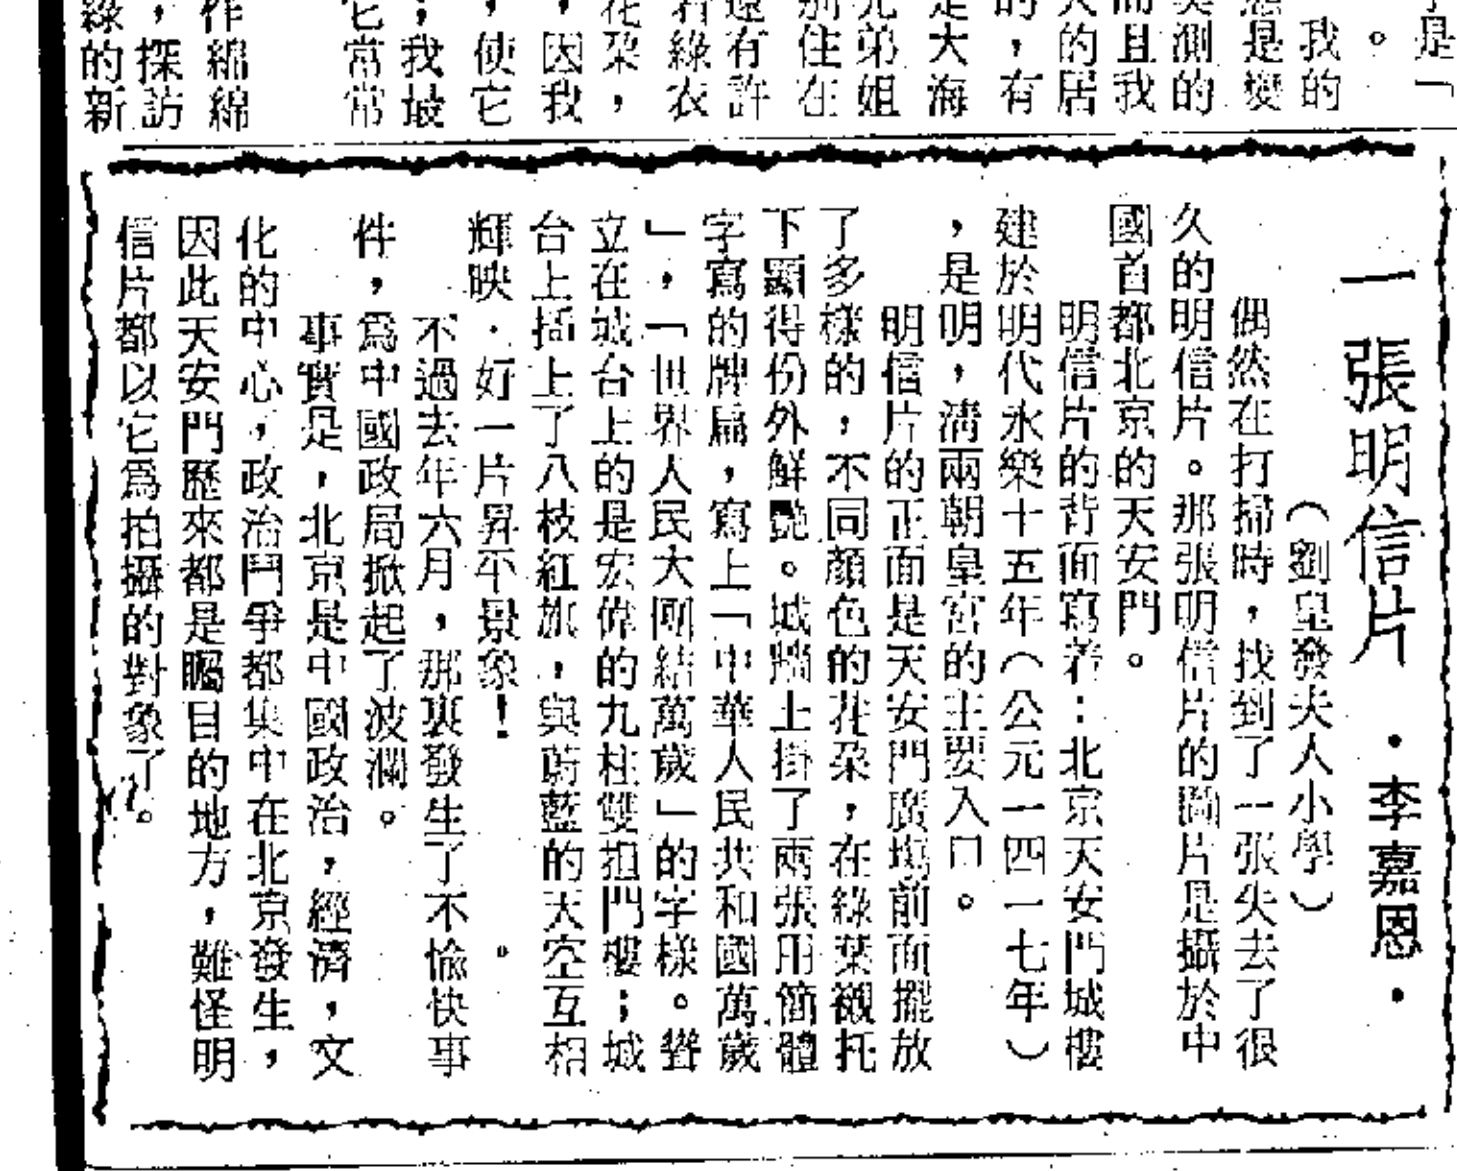 是「
。
我的
是變
測的
而且我
人的居
的，有
是大海
兄弟姐
別住在
還有許
着綠衣
花朶，
，因我
，使它
；我最
它常常
作綿綿
，探訪
綠的新
一張明信片
・李嘉恩・
（劉皇發夫人小學）
偶然在打掃時，找到了一張失去了很
久的明信片。那張明信片的圖片是攝於中
國首都北京的天安門。
明信片的背面寫着：北京天安門城樓
建於明代永樂十五年（公元一四一七年）
，是明，清兩朝皇宮的主要入口。
明信片的正面是天安門廣塲前面擺放
了多樣的，不同顏色的花朶，在綠葉襯托
下顯得份外鮮艷。城牆上掛了兩張用簡體
字寫的牌扁，寫上「中華人民共和國萬歲
」，「世界人民大團結萬歲」的字樣。聳
立在城台上的是宏偉的九柱雙担門樓；城
台上插上了八枝紅旗，與蔚藍的天空互相
輝映．好一片昇平景象！。
不過去年六月，那裏發生了不愉快事
件，爲中國政局掀起了波瀾。
事實是，北京是中國政治，經濟，文
化的中心，政治鬥爭都集中在北京發生，
因此天安門歷來都是矚目的地方，難怪明
信片都以它爲拍攝的對象了。